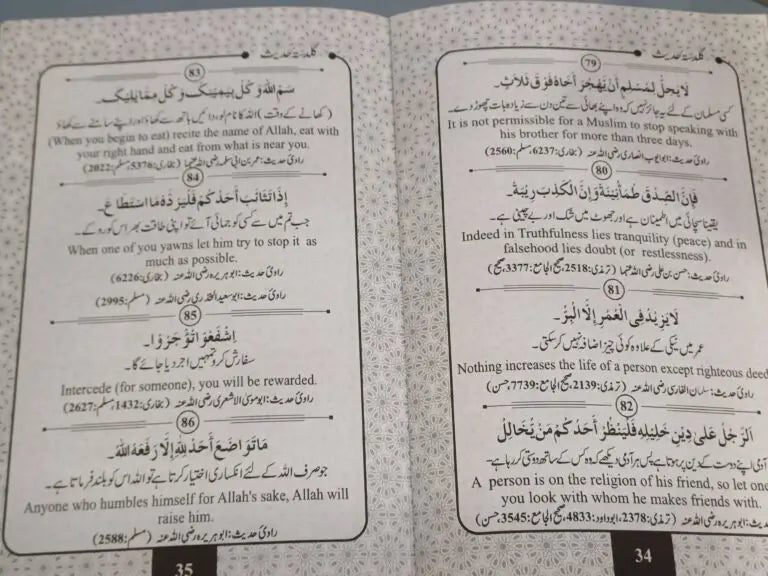 گلدستۂ حدیث
79
لَا يَحِلُّ لِمُسْلِمٍ أَنْ يَهْجُرَ أَخَاهُ فَوْقَ ثَلَاثٍ۔
کسی مسلمان کے لئے یہ جائز نہیں کہ وہ اپنے بھائی سے تین دن سے زیادہ بات چھوڑ دے۔
It is not permissible for a Muslim to stop speaking with
his brother for more than three days.
راویٔ حدیث: ابو ایوب انصاری رضی اللہ عنہ (بخاری: 6237، مسلم: 2560)
80
فَإِنَّ الصِّدْقَ طُمَأْنِينَةٌ وَإِنَّ الْكَذِبَ رِيبَةٌ۔
یقینا سچائی میں اطمینان ہے اور جھوٹ میں شک اور بے چینی ہے۔
Indeed in Truthfulness lies tranquility (peace) and in
falsehood lies doubt (or restlessness).
راویٔ حدیث: حسن بن علی رضی اللہ عنہما (ترمذی: 2518، صحیح الجامع: 3377، صحیح)
81
لَا يَزِيدُ فِي الْعُمُرِ إِلَّا الْبِرُّ۔
عمر میں نیکی کے علاوہ کوئی چیز اضافہ نہیں کرسکتی۔
Nothing increases the life of a person except righteous deed
راویٔ حدیث: سلمان الفارسی رضی اللہ عنہ (ترمذی: 2139، صحیح الجامع: 7739، حسن)
82
اَلرَّجُلُ عَلَى دِينِ خَلِيلِهِ فَلْيَنْظُرْ أَحَدُكُمْ مَنْ يُخَالِلُ
آدمی اپنے دوست کے دین پر ہوتا ہے پس ہر آدمی دیکھے کہ وہ کس کے ساتھ دوستی کر رہا ہے۔
A person is on the religion of his friend, so let one
you look with whom he makes friends with.
راویٔ حدیث: ابو ہریرہ رضی اللہ عنہ (ترمذی: 2378، ابوداود: 4833، صحیح الجامع: 3545، حسن)
34
گلدستۂ حدیث
83
سَمِّ اللهَ وَكُلْ بِيَمِينِكَ وَكُلْ مِمَّا يَلِيكَ۔
(کھانے کے وقت) اللہ کا نام لو، دائیں ہاتھ سے کھاؤ اور اپنے سامنے سے کھاؤ
(When you begin to eat) recite the name of Allah, eat with
your right hand and eat from what is near you.
راویٔ حدیث: عمر بن ابی سلمہ رضی اللہ عنہما (بخاری: 5376، مسلم: 2022)
84
إِذَا تَثَائَبَ أَحَدُكُمْ فَلْيَرُدَّهُ مَا اسْتَطَاعَ۔
جب تم میں سے کسی کو جمائی آئے تو اپنی طاقت بھر اس کو روکے۔
When one of you yawns let him try to stop it as
much as possible.
راویٔ حدیث: ابو ہریرہ رضی اللہ عنہ (بخاری: 6226)
راویٔ حدیث: ابو سعید الخدری رضی اللہ عنہ (مسلم: 2995)
85
اِشْفَعُوْا تُؤْجَرُوْا۔
سفارش کرو تمہیں اجر دیا جائے گا۔
Intercede (for someone), you will be rewarded.
راویٔ حدیث: ابو موسیٰ الاشعری رضی اللہ عنہ (بخاری: 1432، مسلم: 2627)
86
مَا تَوَاضَعَ أَحَدٌ لِلَّهِ إِلَّا رَفَعَهُ اللهُ۔
جو صرف اللہ کے لئے انکساری اختیار کرتا ہے تو اللہ اس کو بلند فرماتا ہے۔
Anyone who humbles himself for Allah's sake, Allah will
raise him.
راویٔ حدیث: ابو ہریرہ رضی اللہ عنہ (مسلم: 2588)
35